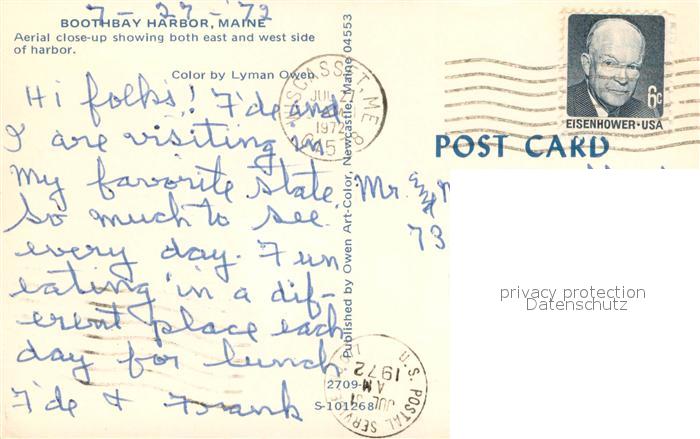 7-27-'72
BOOTHBAY HARBOR, MAINE
Aerial close-up showing both east and west side
of harbor.
Color by Lyman Owen
Hi folks! F'de and
I are visiting in
my favorite state.
So much to see
every day. Fun
eating in a dif-
erent place each
day for lunch
F'de & Frank
Published by Owen Art-Color, Newcastle, Maine 04553
2709-
S-101268
WISCASSET, ME
JUL 27
1972
045
POST CARD
6c
EISENHOWER·USA
Mr. and
73
privacy protection
Datenschutz
U.S. POSTAL SERVICE
JUL 31
AM
1972